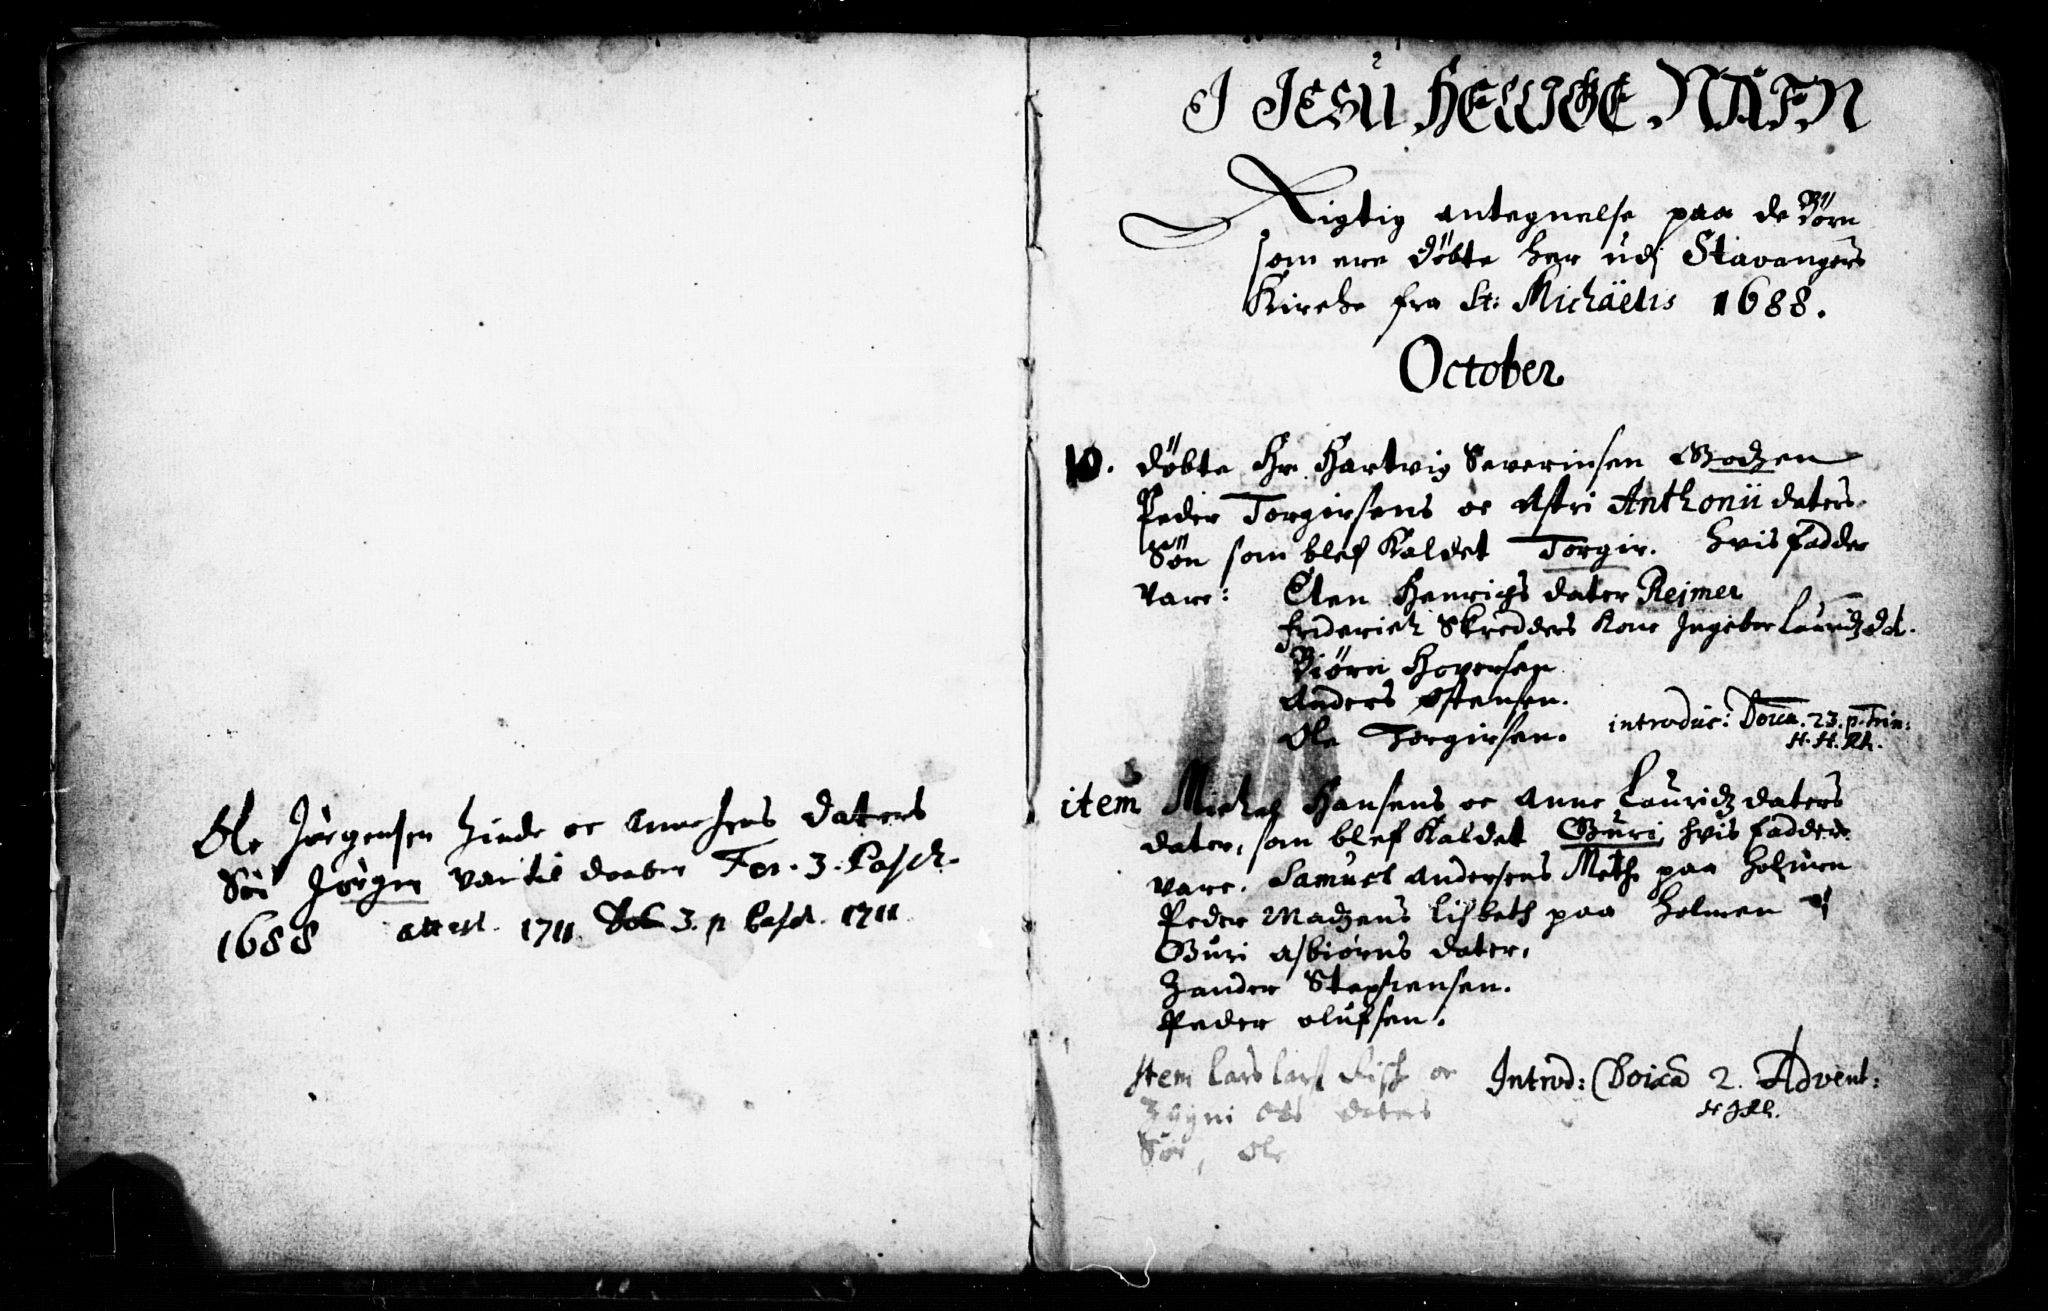 Ole Jørgensen Hinde oc Anne Jens daters
Søn Jørgen var til daaben Fer. 3. Pasch.
1688 attest. 1711. Dom 3. p Pasch. 1711
I JESU HELLIGE NAFN
Rigtig antegnelse paa de Børn
som ere døbte her udj Stavangers
Kirche fra St: Michaëlis 1688.
October
10. døbte Hr. Hartvig Severinsen Godzen
Peder Torgirsens oc Astri Anthonii daters
Søn som blef kaldet Torgir. hvis fadder
vare: Elen Henrichs dater Reimer
Friderich Skredders Kone Ingebor Lauridz dd.
Biørn Hoversen
Anders Østensen.
Ole Torgirsen. introduc: Domca. 23. p. Trin:
H. H. Rh.
item Michel Hansens oc Anne Lauridz daters
dater, som blef kaldet Guri, hvis fadder
vare. Samuel Andersens Methe paa Holmen
Peder Madzens Lisbeth paa Holmen
Guri Asbiørns dater,
Zander Stephensen.
Peder Olufsen.
Item Lars Lars Fisk oc Introd: Doica 2. Advent:
H J Rh.
Zygni Ols daters
Søn, Ole